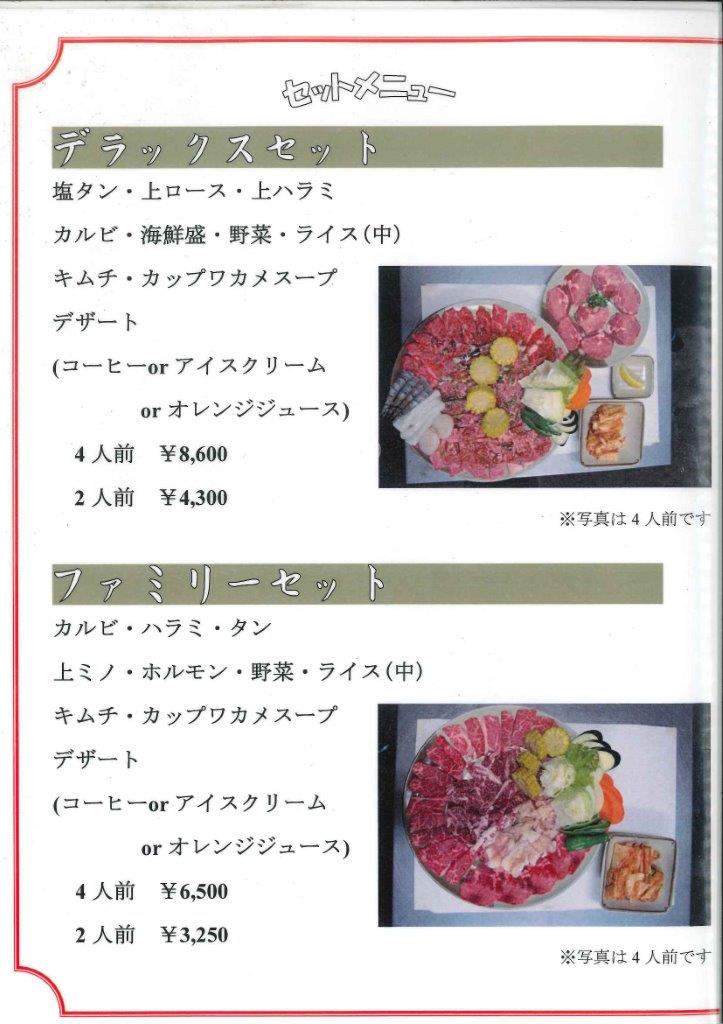 セットメニュー
デラックスセット
塩タン・上ロース・上ハラミ
カルビ・海鮮盛・野菜・ライス(中)
キムチ・カップワカメスープ
デザート
(コーヒーor アイスクリーム
or オレンジジュース)
4 人前 ¥8,600
2 人前 ¥4,300
※写真は 4 人前です
ファミリーセット
カルビ・ハラミ・タン
上ミノ・ホルモン・野菜・ライス(中)
キムチ・カップワカメスープ
デザート
(コーヒーor アイスクリーム
or オレンジジュース)
4 人前 ¥6,500
2 人前 ¥3,250
※写真は 4 人前です